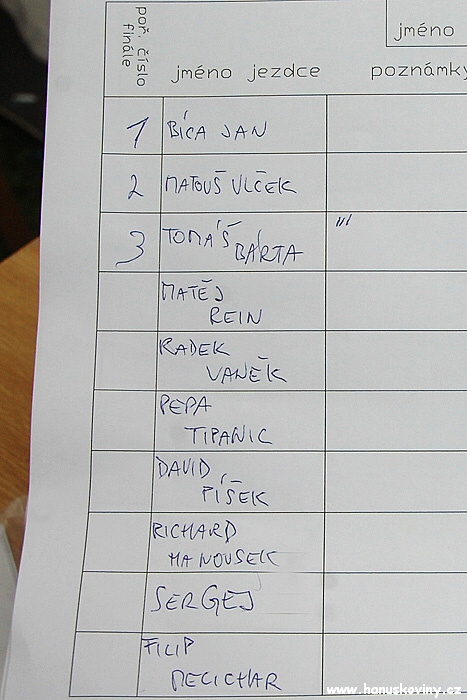 jméno
poř. číslo
finále
jméno jezdce
poznámky
1 BÍCA JAN
2 MATOUŠ VLČEK
3 TOMÁŠ
BÁRTA
MATĚJ
REIN
RADEK
VANĚK
PEPA
TIPANIC
DAVID
PÍŠEK
RICHARD
MANOUSEK
SERGEJ
FILIP
MELICHAR
www.hanuskoviny.cz